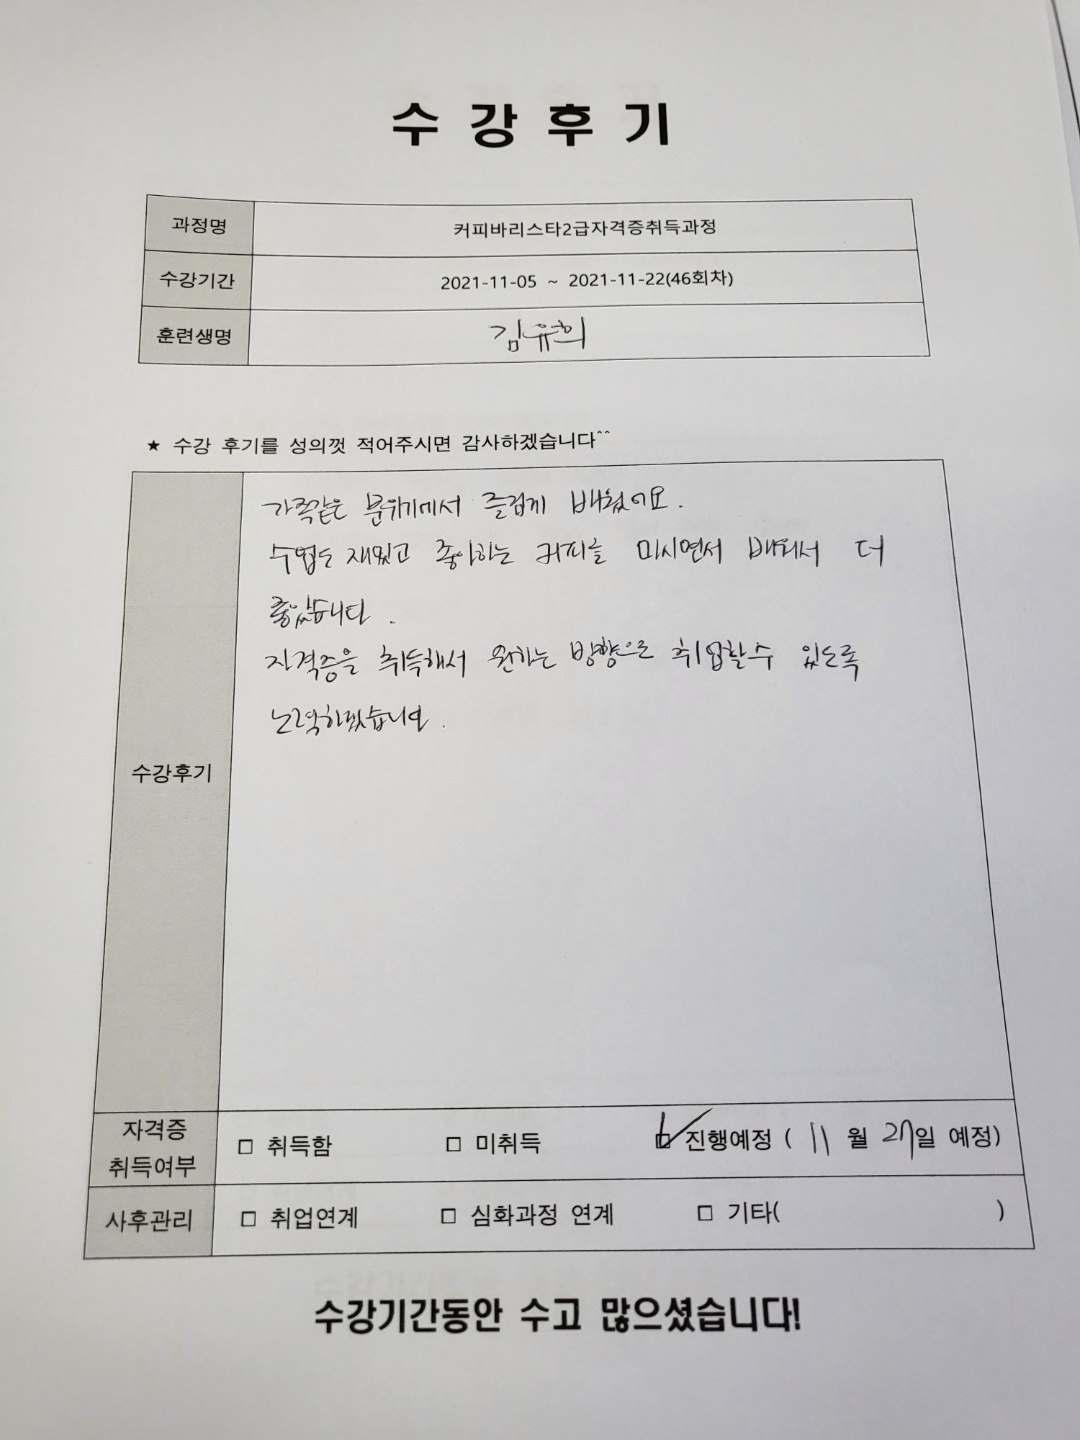 수 강 후 기
과정명 커피바리스타2급자격증취득과정
수강기간 2021-11-05 ~ 2021-11-22(46회차)
훈련생명 김유희
★ 수강 후기를 성의껏 적어주시면 감사하겠습니다^^
가족같은 분위기에서 즐겁게 배웠어요.
수업도 재밌고 좋아하는 커피를 마시면서 배워서 더
좋았습니다.
자격증을 취득해서 원하는 방향으로 취업할수 있도록
노력하겠습니다.
수강후기
자격증
취득여부
□ 취득함 □ 미취득 ☑ 진행예정 ( 11 월 27일 예정)
사후관리 □ 취업연계 □ 심화과정 연계 □ 기타( )
수강기간동안 수고 많으셨습니다!